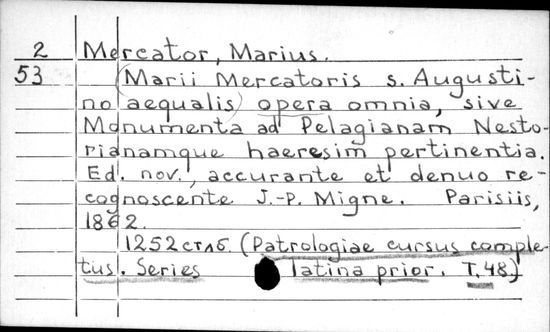 2 Mercator, Marius.
53 (Marii Mercatoris s. Augusti-
no aequalis) opera omnia, sive
Monumenta ad Pelagianam Nesto-
rianamque haeresim pertinentia.
Ed. nov., accurante et denuo re-
cognoscente J.-P. Migne. Parisiis,
1862.
1252 стлб. (Patrologiae cursus comple-
tus. Series latina prior. T. 48)